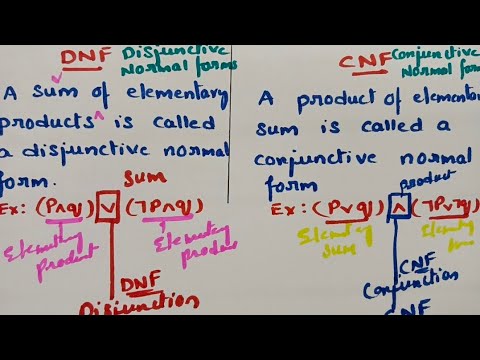 DNF Disjunctive
Normal forms
A sum of elementary
products ^ is called
a disjunctive normal
form.
sum
Ex: (P∧q) ∨ (¬P∧q)
Elementary
product
Elementary
DNF
Disjunction
CNF Conjunctive
Normal forms
A product of elementary
sum is called a
conjunctive normal
form
product
Ex: (P∨q) ∧ (¬P∨¬q)
Elementary
sum
CNF
Conjunction
CNF